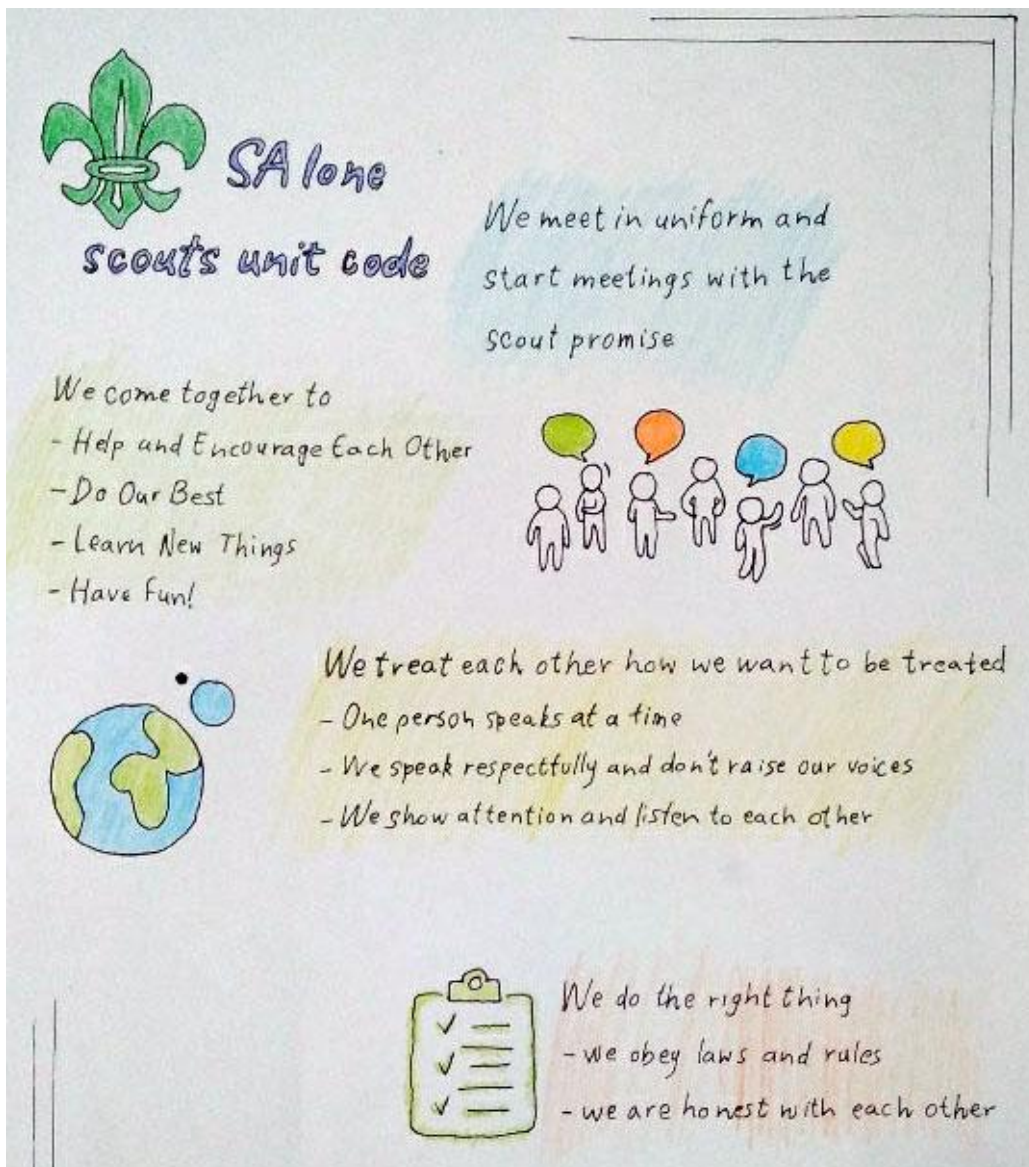 SA lone
scouts unit code
We meet in uniform and
start meetings with the
scout promise
We come together to
- Help and Encourage Each Other
- Do Our Best
- Learn New Things
- Have Fun!
We treat each other how we want to be treated
- One person speaks at a time
- We speak respectfully and don't raise our voices
- We show attention and listen to each other
We do the right thing
- we obey laws and rules
- we are honest with each other